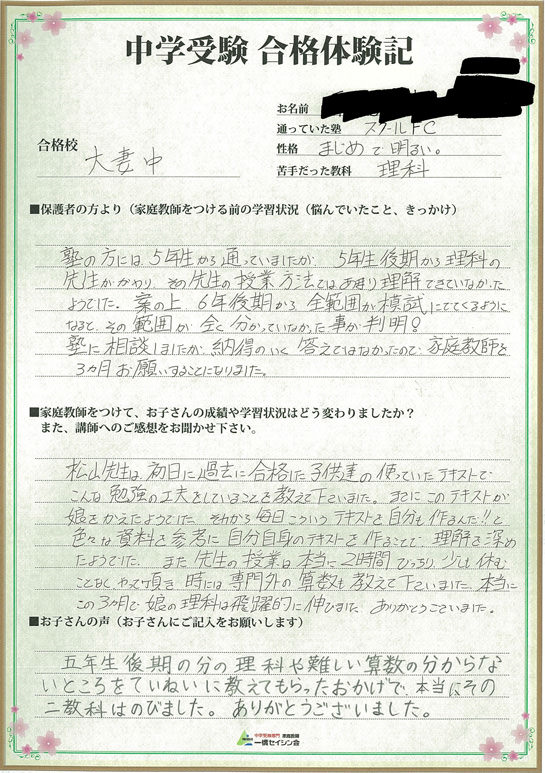 中学受験 合格体験記
お名前
通っていた塾 スクールFC
合格校 大妻中
性格 まじめで明るい。
苦手だった教科 理科
■保護者の方より（家庭教師をつける前の学習状況（悩んでいたこと、きっかけ）
塾の方には、5年生から通っていましたが、5年生後期から理科の
先生がかわり、その先生の授業方法ではあまり理解できていなかった
ようでした。案の上、6年後期から全範囲が模試にでてくるように
なると、その範囲が全く分かっていなかった事が判明!
塾に相談しましたが、納得のいく答えではなかったので、家庭教師を
3カ月お願いすることになりました。
■家庭教師をつけて、お子さんの成績や学習状況はどう変わりましたか？
また、講師へのご感想をお聞かせ下さい。
松山先生は、初日に過去に合格した子供達の使っていたテキストで
こんな勉強の工夫をしていることを教えて下さいました。まさにこのテキストが
娘をかえたようでした。それから毎日こういうテキストを自分も作るんだ!!と
色々な資料を参考に自分自身のテキストを作ることで、理解を深め
たようでした。また先生の授業は本当に2時間びっちり、少しも休む
ことなくやって頂き、時には専門外の算数も教えて下さいました。本当に
この3カ月で娘の理科は飛躍的に伸びました。ありがとうございました。
■お子さんの声（お子さんにご記入をお願いします）
五年生後期の分の理科や難しい算数の分からな
いところをていねいに教えてもらったおかげで、本当にその
二教科はのびました。ありがとうございました。
中学受験専門 家庭教師
一橋セイシン会